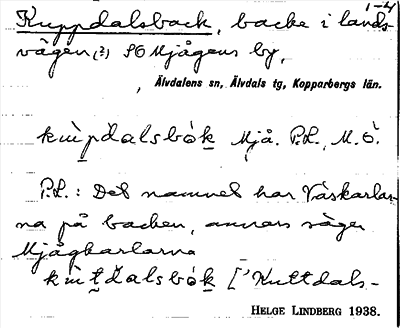 1-4
Kuppdalsback, backe i lands
vägen (?) SO Mjågens by,
Älvdalens sn, Älvdals tg, Kopparbergs län.
kùp̲dalsbòk̲ Mjå. P.L., M.Ö.
P.L.: Det namnet har Våskarlar-
na på backen, annars säger
Mjågkarlarna
kùt̲dalsbòk̲ ['Kuttdals-
HELGE LINDBERG 1938.